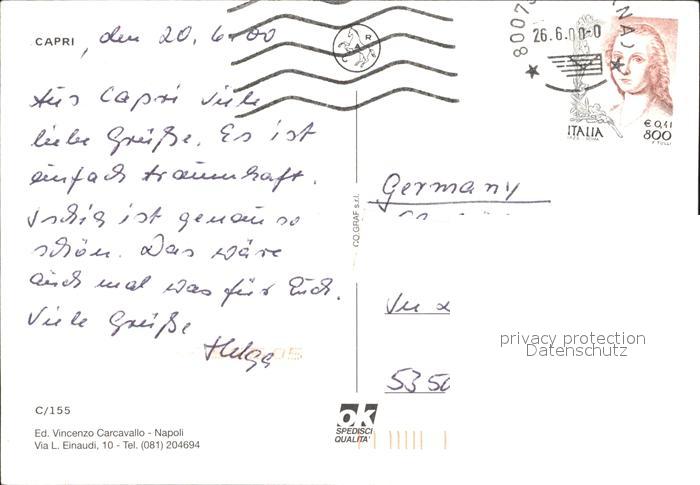 CAPRI, den 20.6.00
Aus Capri viele
liebe Grüße. Es ist
einfach traumhaft.
Ischia ist genau so
schön. Das wäre
auch mal was für Euch.
Viele Grüße
Helga
C/155
Ed. Vincenzo Carcavallo - Napoli
Via L. Einaudi, 10 - Tel. (081) 204694
CO.GRAF s.r.l.
ok
SPEDISCI
QUALITA'
A R
8007
NA)
26.6.00-0
€ 0,41
ITALIA 800
Germany
5350
privacy protection
Datenschutz